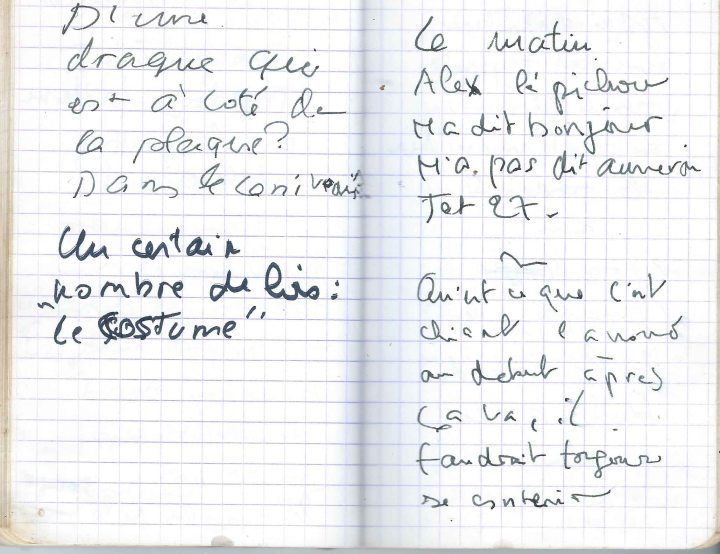 D'une
draque qui
est à coté de
la plaque?
Dans le caniveau
Un certain
nombre de fois:
"le costume"
Le matin
Alex le pichou
M'a dit bonjour
M'a pas dit aurevoir
Tot 27.
Qu'est ce que c'est
chiant
au debut après
ça va, il
faudrait toujours
se contenir